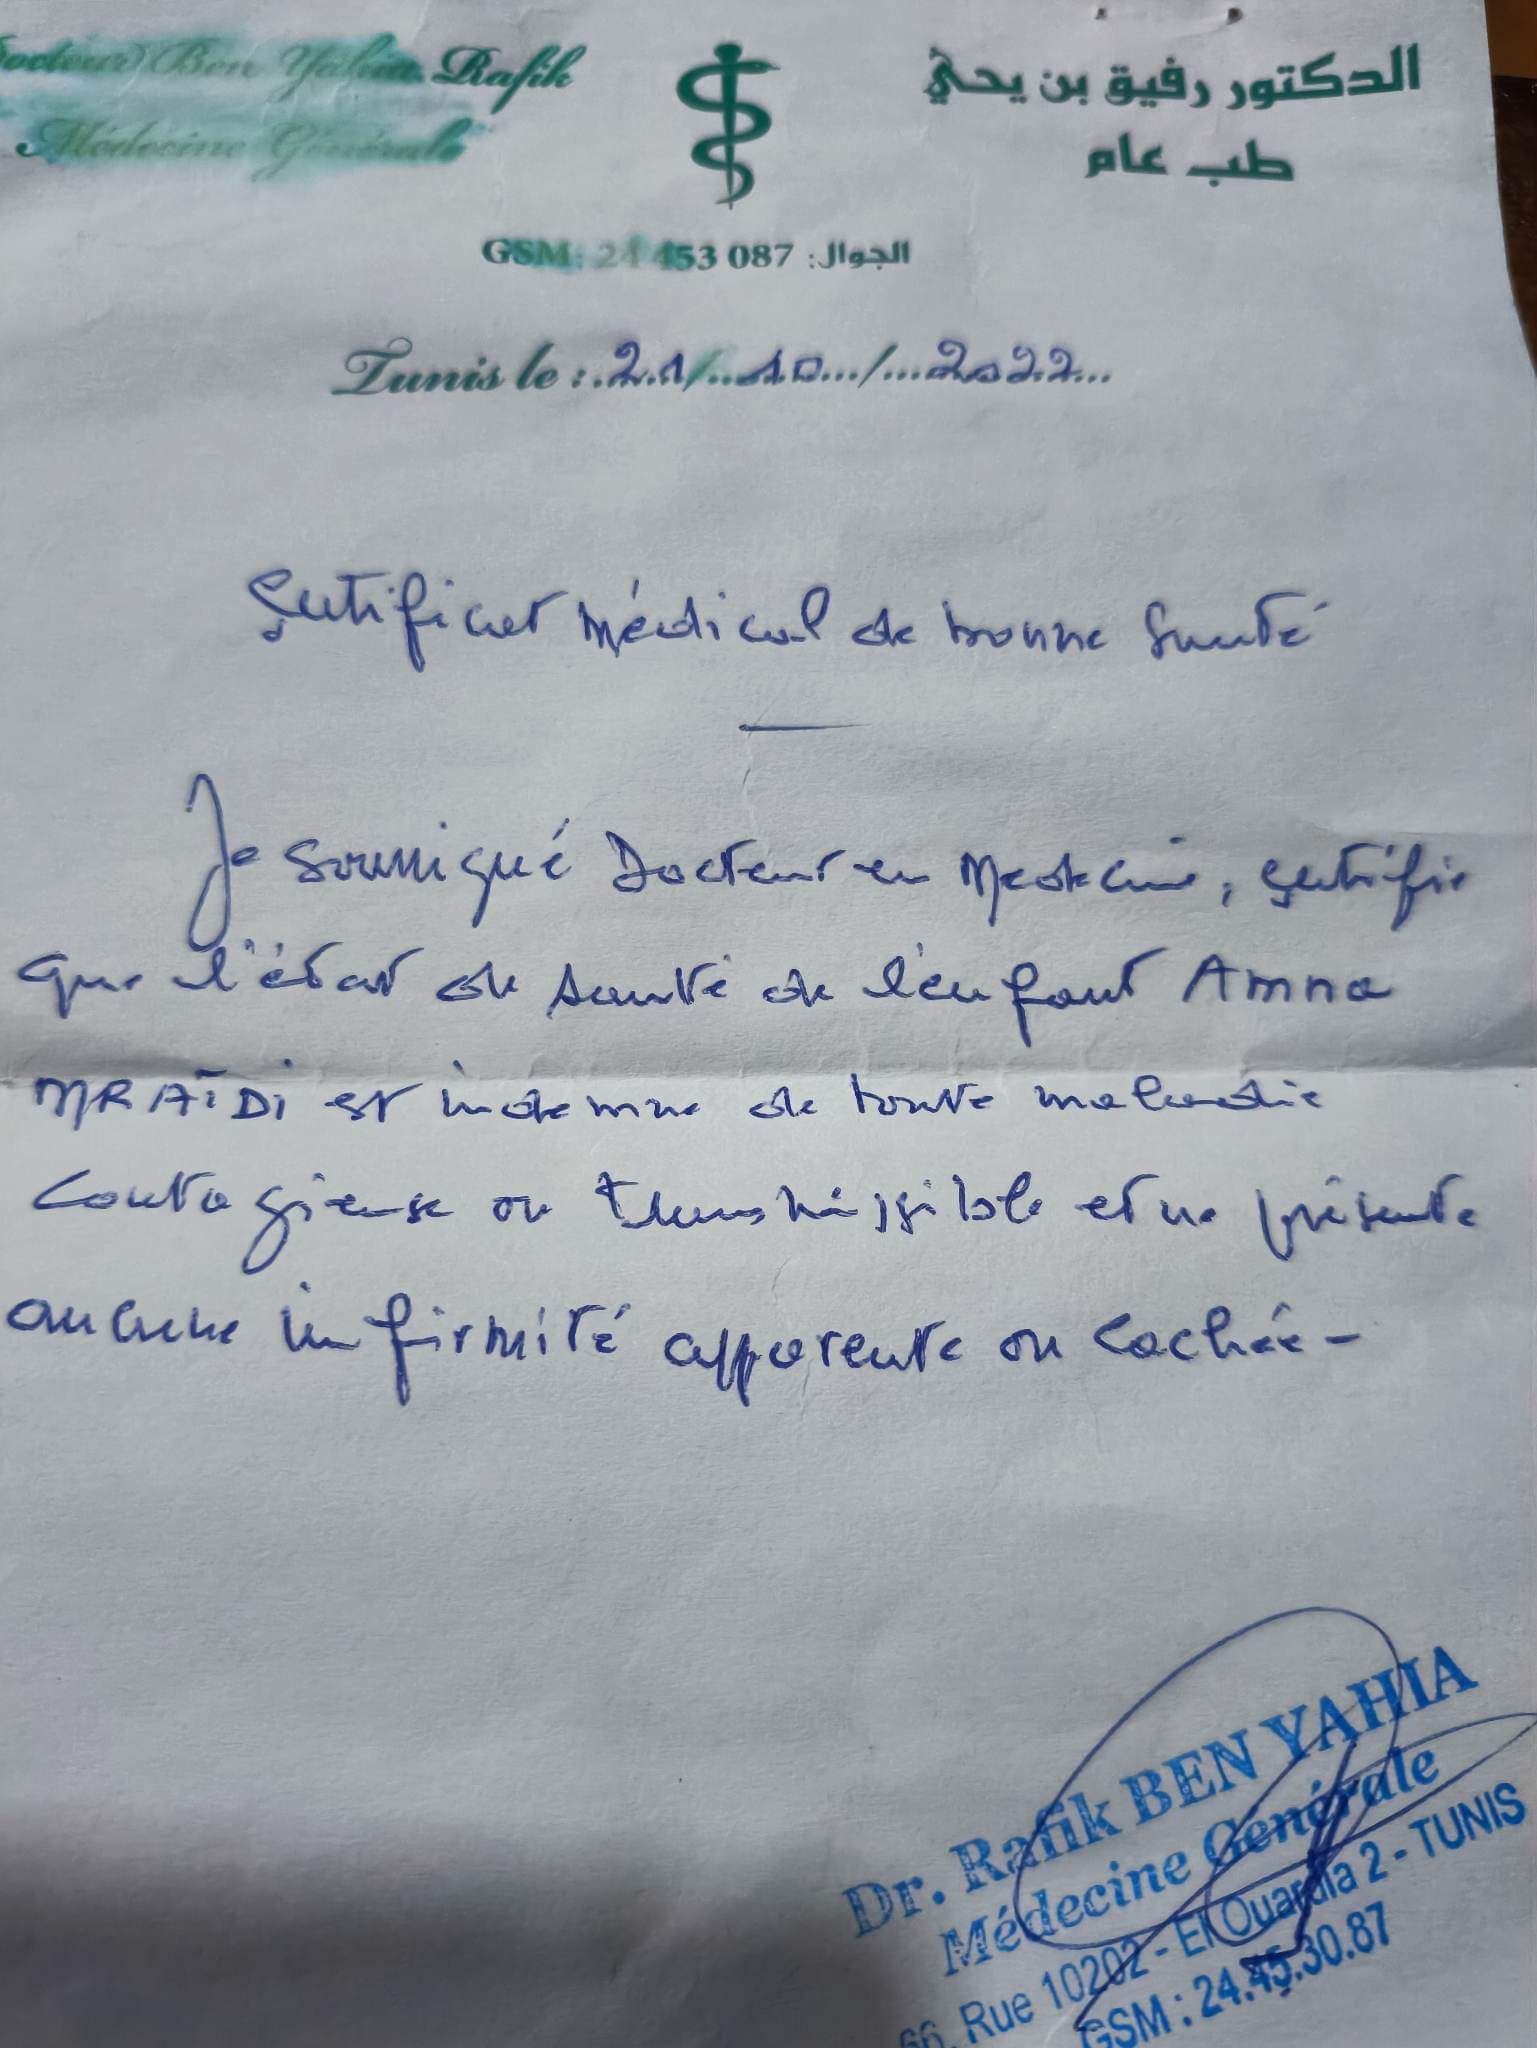 Docteur Ben Yahia Rafik
Médecine Générale
الدكتور رفيق بن يحي
طب عام
GSM: 24 453 087 :الجوال
Tunis le : 21 / 10 / 2022
Certificat Médical de bonne Santé
Je soussigné Docteur en Médecine, certifie
que l'état de santé de l'enfant Amna
MRAÏDI est indemne de toute maladie
contagieuse ou transmissible et ne présente
aucune infirmité apparente ou cachée -
Dr. Rafik BEN YAHIA
Médecine Générale
66, Rue 10202 - El Ouardia 2 - TUNIS
GSM : 24.45.30.87